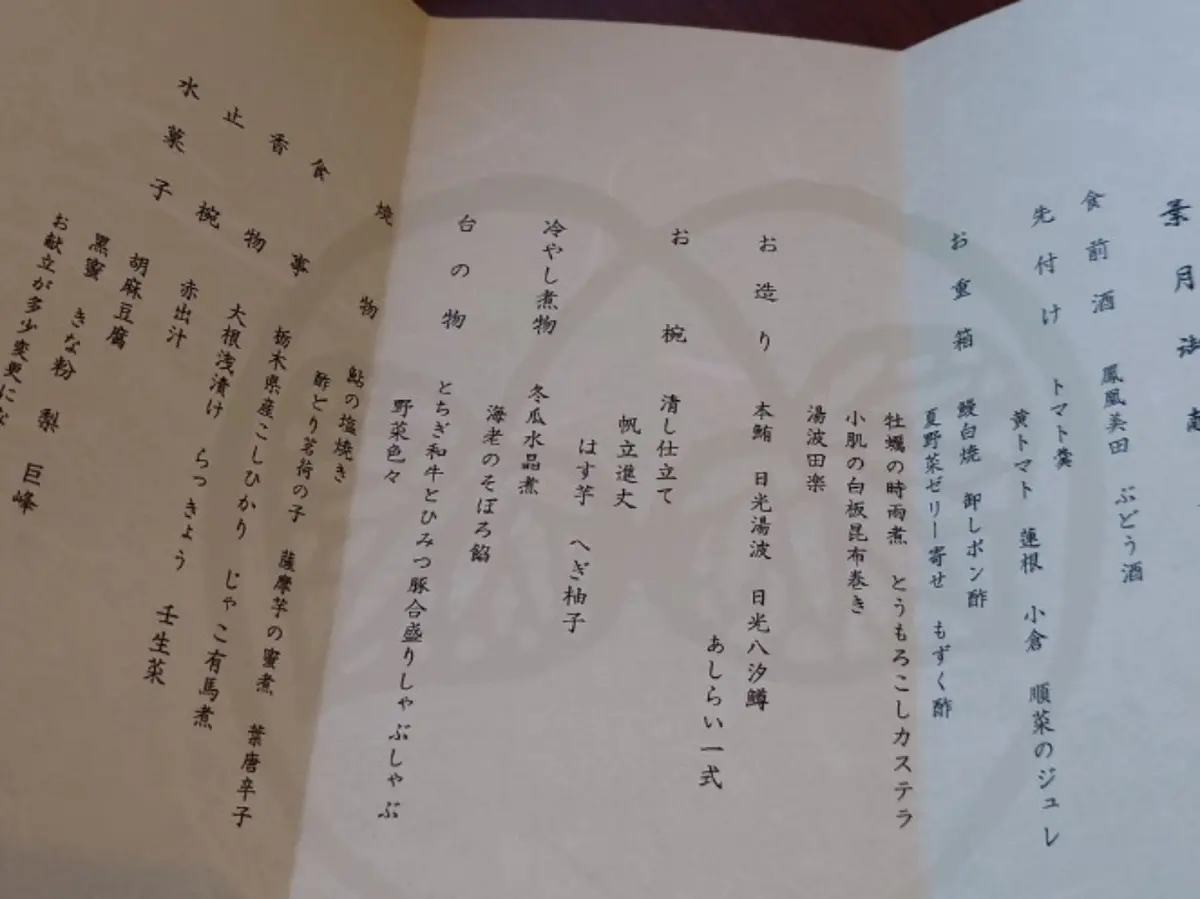 葉月御献
食前酒 鳳凰美田 ぶどう酒
先付け トマト羹
黄トマト 蓮根 小倉 順菜のジュレ
お重箱 鰻白焼 卸しポン酢
夏野菜ゼリー寄せ もずく酢
牡蠣の時雨煮 とうもろこしカステラ
小肌の白板昆布巻き
湯波田楽
お造り 本鮪 日光湯波 日光八汐鱒
あしらい一式
お椀 清し仕立て
帆立進丈
はす芋 へぎ柚子
冷やし煮物 冬瓜水晶煮
海老のそぼろ餡
台の物 とちぎ和牛とひみつ豚合盛りしゃぶしゃぶ
野菜色々
焼物 鮎の塩焼き
酢どり茗荷の子 薩摩芋の蜜煮 葉唐辛子
食事 栃木県産こしひかり じゃこ有馬煮
香物 大根浅漬け らっきょう 壬生菜
止椀 赤出汁
水菓子 胡麻豆腐
黒蜜 きな粉 梨 巨峰
お献立が多少変更にな